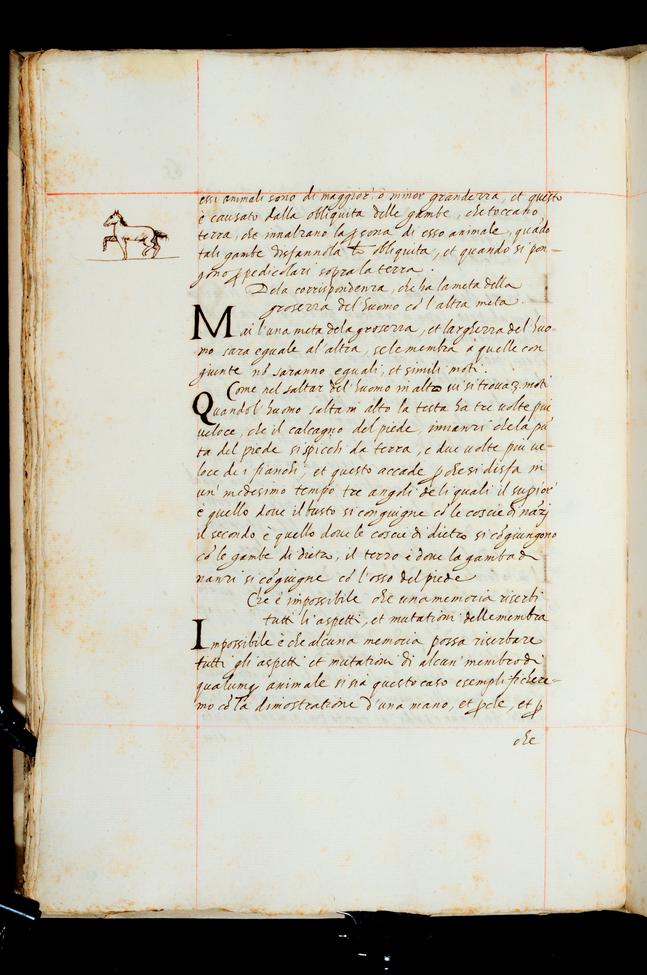 essi animali sono di maggior, o minor grandezza, et questo
è causato dalla obliquita delle gambe, che toccano
terra, che innalzano la persona di esso animale, quādo
tali gambe disfannola obliquita, et quando si pon-
gono ꝑpēdicolari sopra la terra.
Dela corrispondenza, che ha la meta della
grosezza del huomo cō l'altra meta.
Mai l'una meta dela grosezza, et larghezza del huo-
mo sara equale al'altra, se le membra a quelle con
giunte nō saranno equali, et simili moti.
Come nel saltar del'huomo in alto ui si troua 3. moti
Quandol'huomo salta in alto la testa ha tre uolte piu
ueloce, che il calcagno del piede, innanzi che la pū
ta del piede si spicchi da terra, e due uolte piu ue-
loce de i fianchi, et questo accade ꝑche si disfa in
un' medesimo tempo tre angoli de li quali il suꝑior'
è quello doue il busto si congiugne cō le coscie dināzi
il secondo è quello doue le coscie di dietro si cōgiungono
cō le gambe di dietro, il terzo è doue la gamba di
nanzi si cōgiugne cō l'osso del piede
Che è impossibile che una memoria riserbi
tutti li aspetti, et mutationi delle membra
Impossibile è che alcuna memoria possa riserbare
tutti gli aspetti et mutationi di alcun' membro di
qualunq; animale si sia questo caso esemplificare-
mo cō la dimostratione d'una mano, et ꝑche, et ꝑ
che